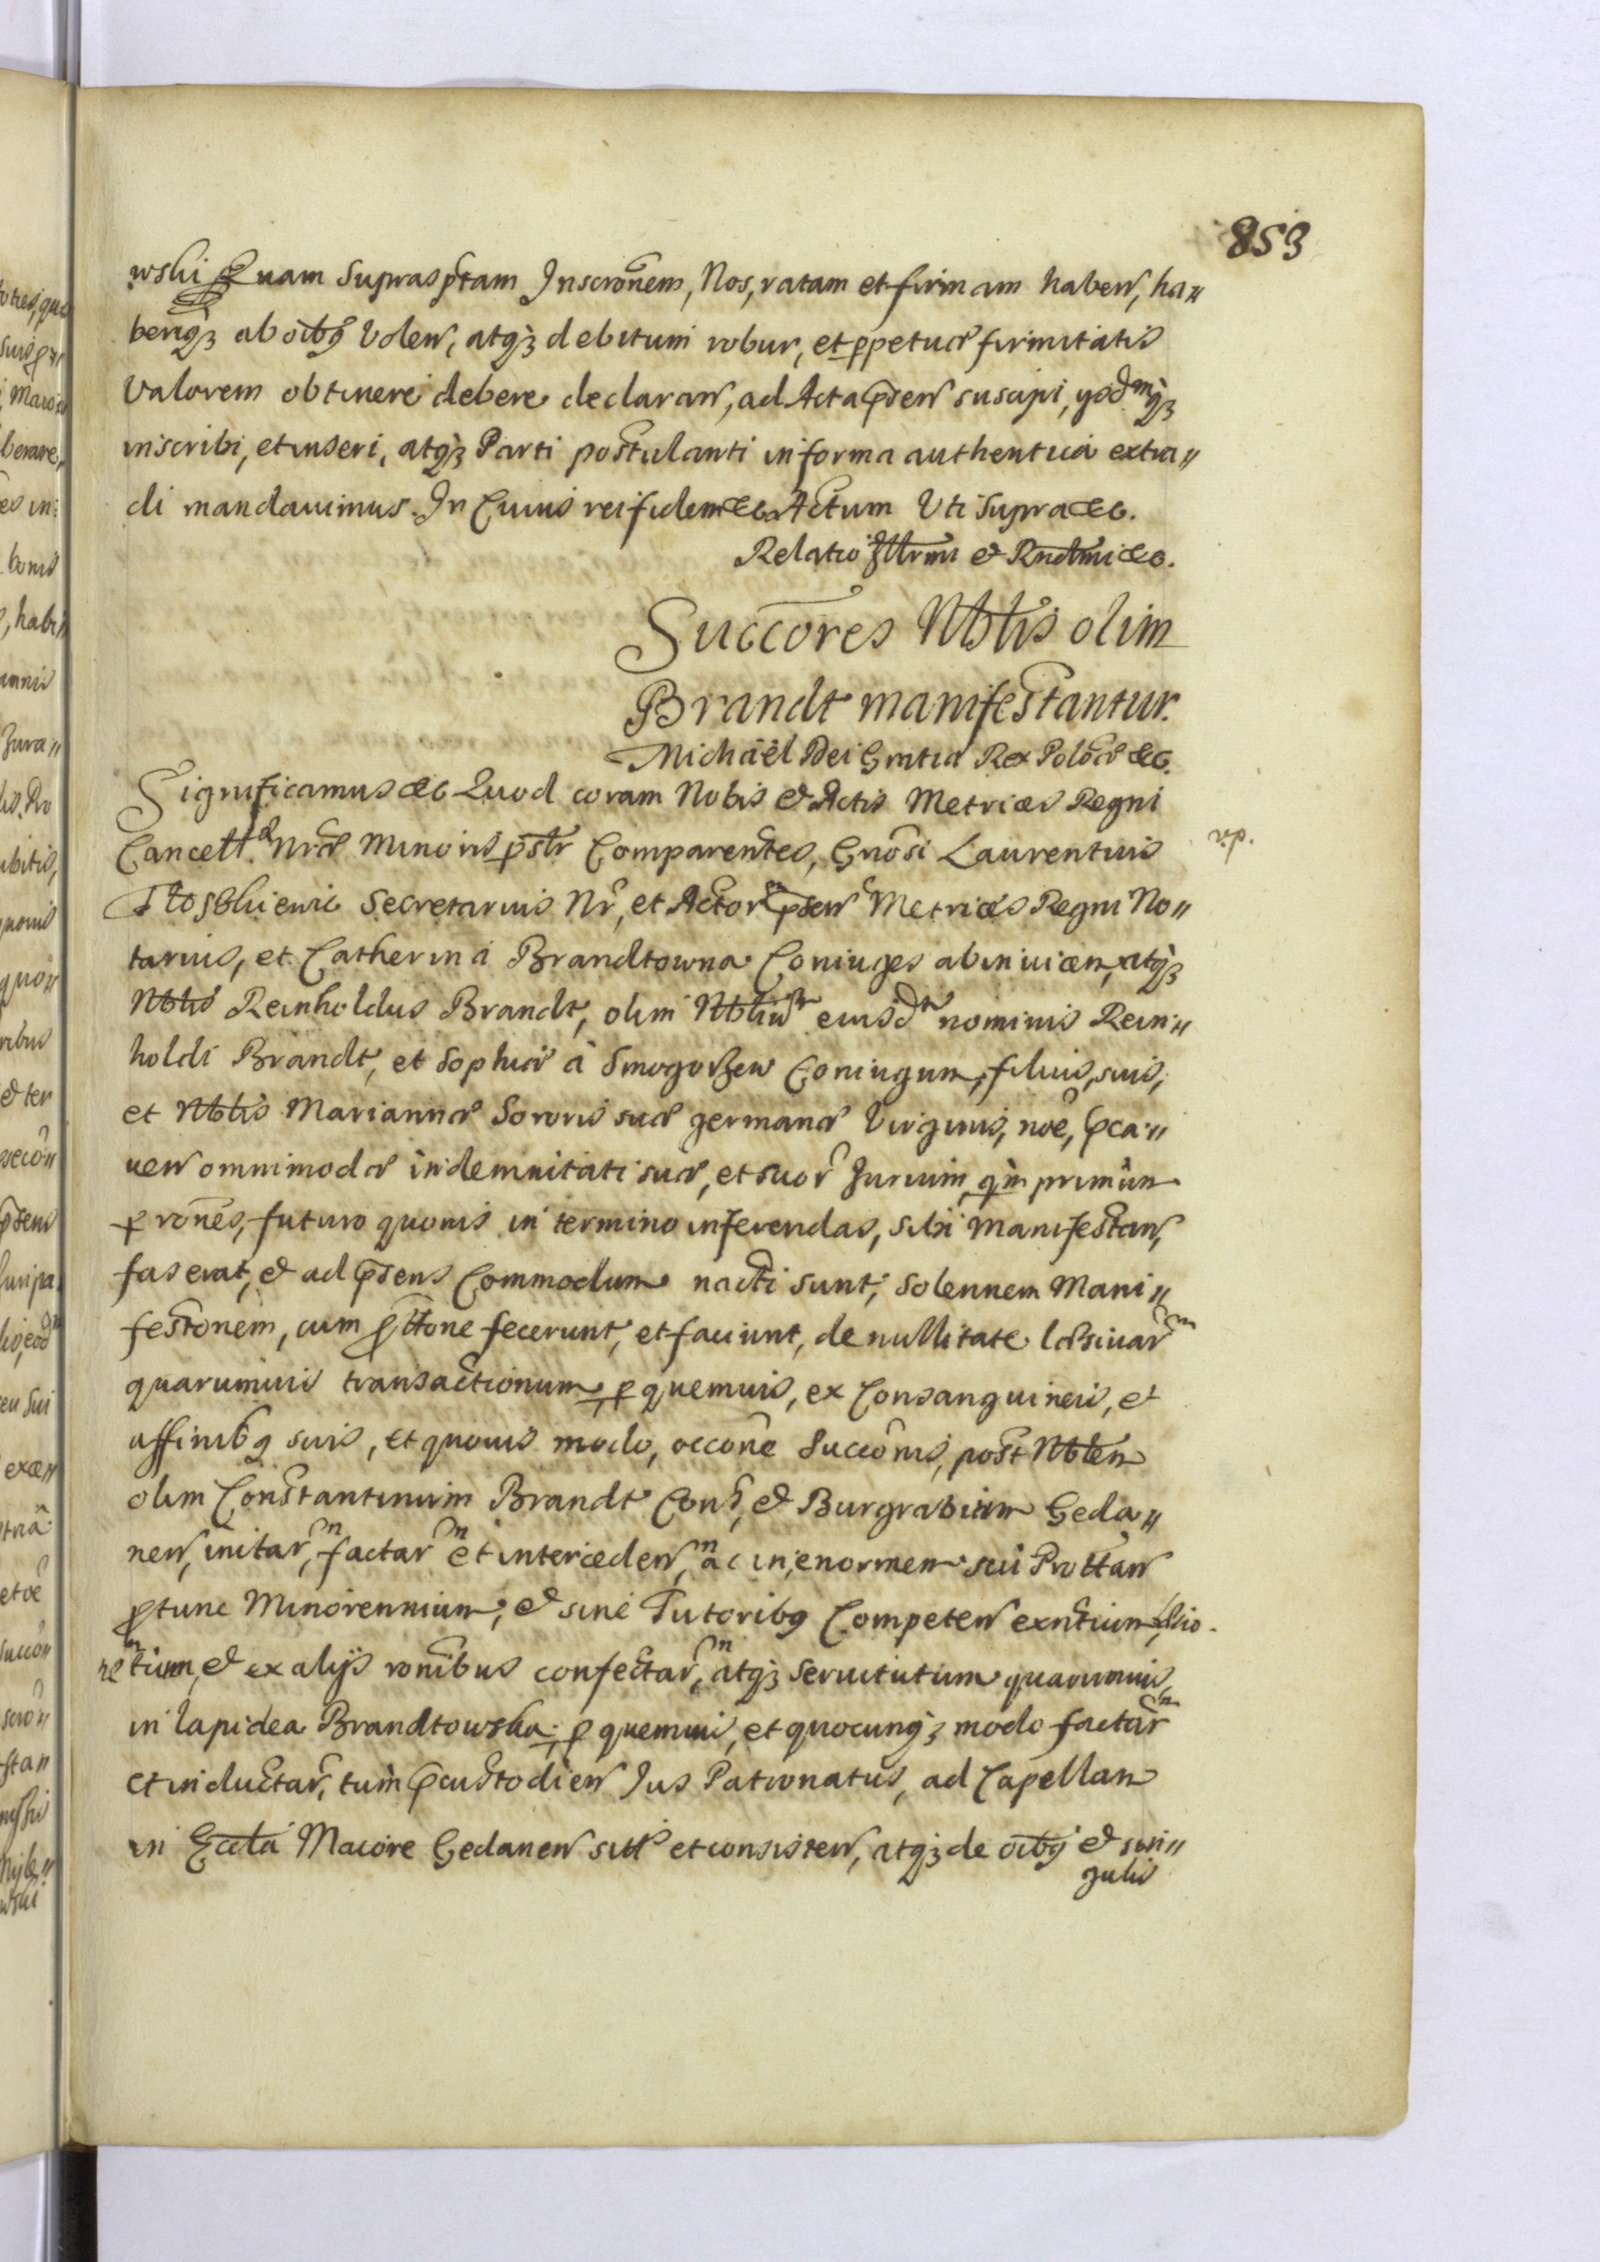 853
wski Quam suprasptam Inscronem, Nos, ratam et firmam haben, ha〃
beriq3 ab oibq Volen, atq3 debitum robur, et ppetuæ firmitatis
Valorem obtinere debere declaran, ad Acta psen suscipi,
inscribi, et inseri, atq3 Parti postulanti in forma authentica extra〃
di mandauimus. In Cuius rei fidem &c. Actum Uti Supra &c.
Relatio Illrmi & Rndmi &c.
Succores Nblis olim
Brandt manifestantur.
Michaël Dei Gratia Rex Polæ &c.
Significamus &c Quod coram Nobis & Actis Metrices Regni
Cancell. Nræ Minoris pslr Comparentes, Gnosi Laurentius
Secretarius Nr, et Actor psen Metrices Regni No〃
tarius, et Catherina Brandtowna Coniuges ab inuicem, atq3
Nblis Reinholdus Brandt, olim Nbliu eiusd nominis Rein〃
holdi Brandt, et Sophiæ a Smogorzew Coniugum, filius, suis,
et Nblis Mariannæ Sororis suæ germanæ Virginis, noe, pca〃
uen omnimodæ indemnitati suæ, et suor Jurium, qm primum
p rones, futuro quouis in termino inferendas, sibi manifestan,
fas erat, & ad psens Commodum nacti sunt, Solennem Mani〃
festonem, cum pttone fecerunt, et faciunt, de nullitate læsiuar
quarumuis transactionum, p quemuis, ex Consanguineis, et
affinibq suis, et quouis modo, occone Succonis, post Nblem
olim Constantinum Brandt Cons, & Burgrabium Geda〃
nen, initar, factar et interceden, ac in enormem seu Prottan
ptunc Minorennium, & sine Tutoribq Competen exntium,
& ex alijs ronibus confectar, atq3 seruitutum quarumuis,
in lapidea Brandtowska, p quemuis, et quocunq3 modo factar
et inductar, tum pcustodien Jus Patronatus, ad Capellam
in Eccla Maiore Gedanen sitt et consisten, atq3 de oibq & sin〃
gulis